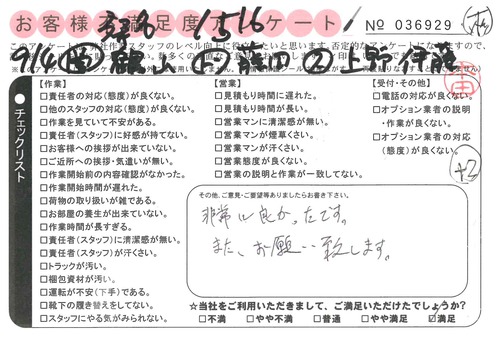 お客様 満足度アンケート! № 036929
1516
9/4
【作業】
□責任者の対応(態度)が良くない。
□他のスタッフの対応(態度)が良くない。
□作業を見ていて不安がある。
□責任者(スタッフ)に好感が持てない。
□お客様への挨拶が出来ていない。
□ご近所への挨拶・気遣いが無い。
□作業開始前の内容確認がなかった。
□作業開始時間が遅れた。
□荷物の取り扱いが雑である。
□お部屋の養生が出来ていない。
□作業時間が長すぎる。
□責任者(スタッフ)に清潔感が無い。
□責任者(スタッフ)が汗くさい。
□トラックが汚い。
□梱包資材が汚い。
□運転が不安(下手)である。
□靴下の履き替えをしてない。
□スタッフにやる気がみられない。
【営業】
□見積もり時間に遅れた。
□見積もり時間が長い。
□営業マンに清潔感が無い。
□営業マンが煙草くさい。
□営業マンが汗くさい。
□営業態度が良くない。
□営業の説明と作業が一致してない。
【受付・その他】
□電話の対応が良くない。
□オプション業者の説明・作業が良くない。
□オプション業者の対応(態度)が良くない。
チェックリスト
その他、ご意見・ご要望等ありましたらお書き下さい。
非常に良かったです。
また、お願い致します。
☆当社をご利用いただきまして、ご満足いただけたでしょうか?
□不満 □やや不満 □普通 □やや満足 ☑満足